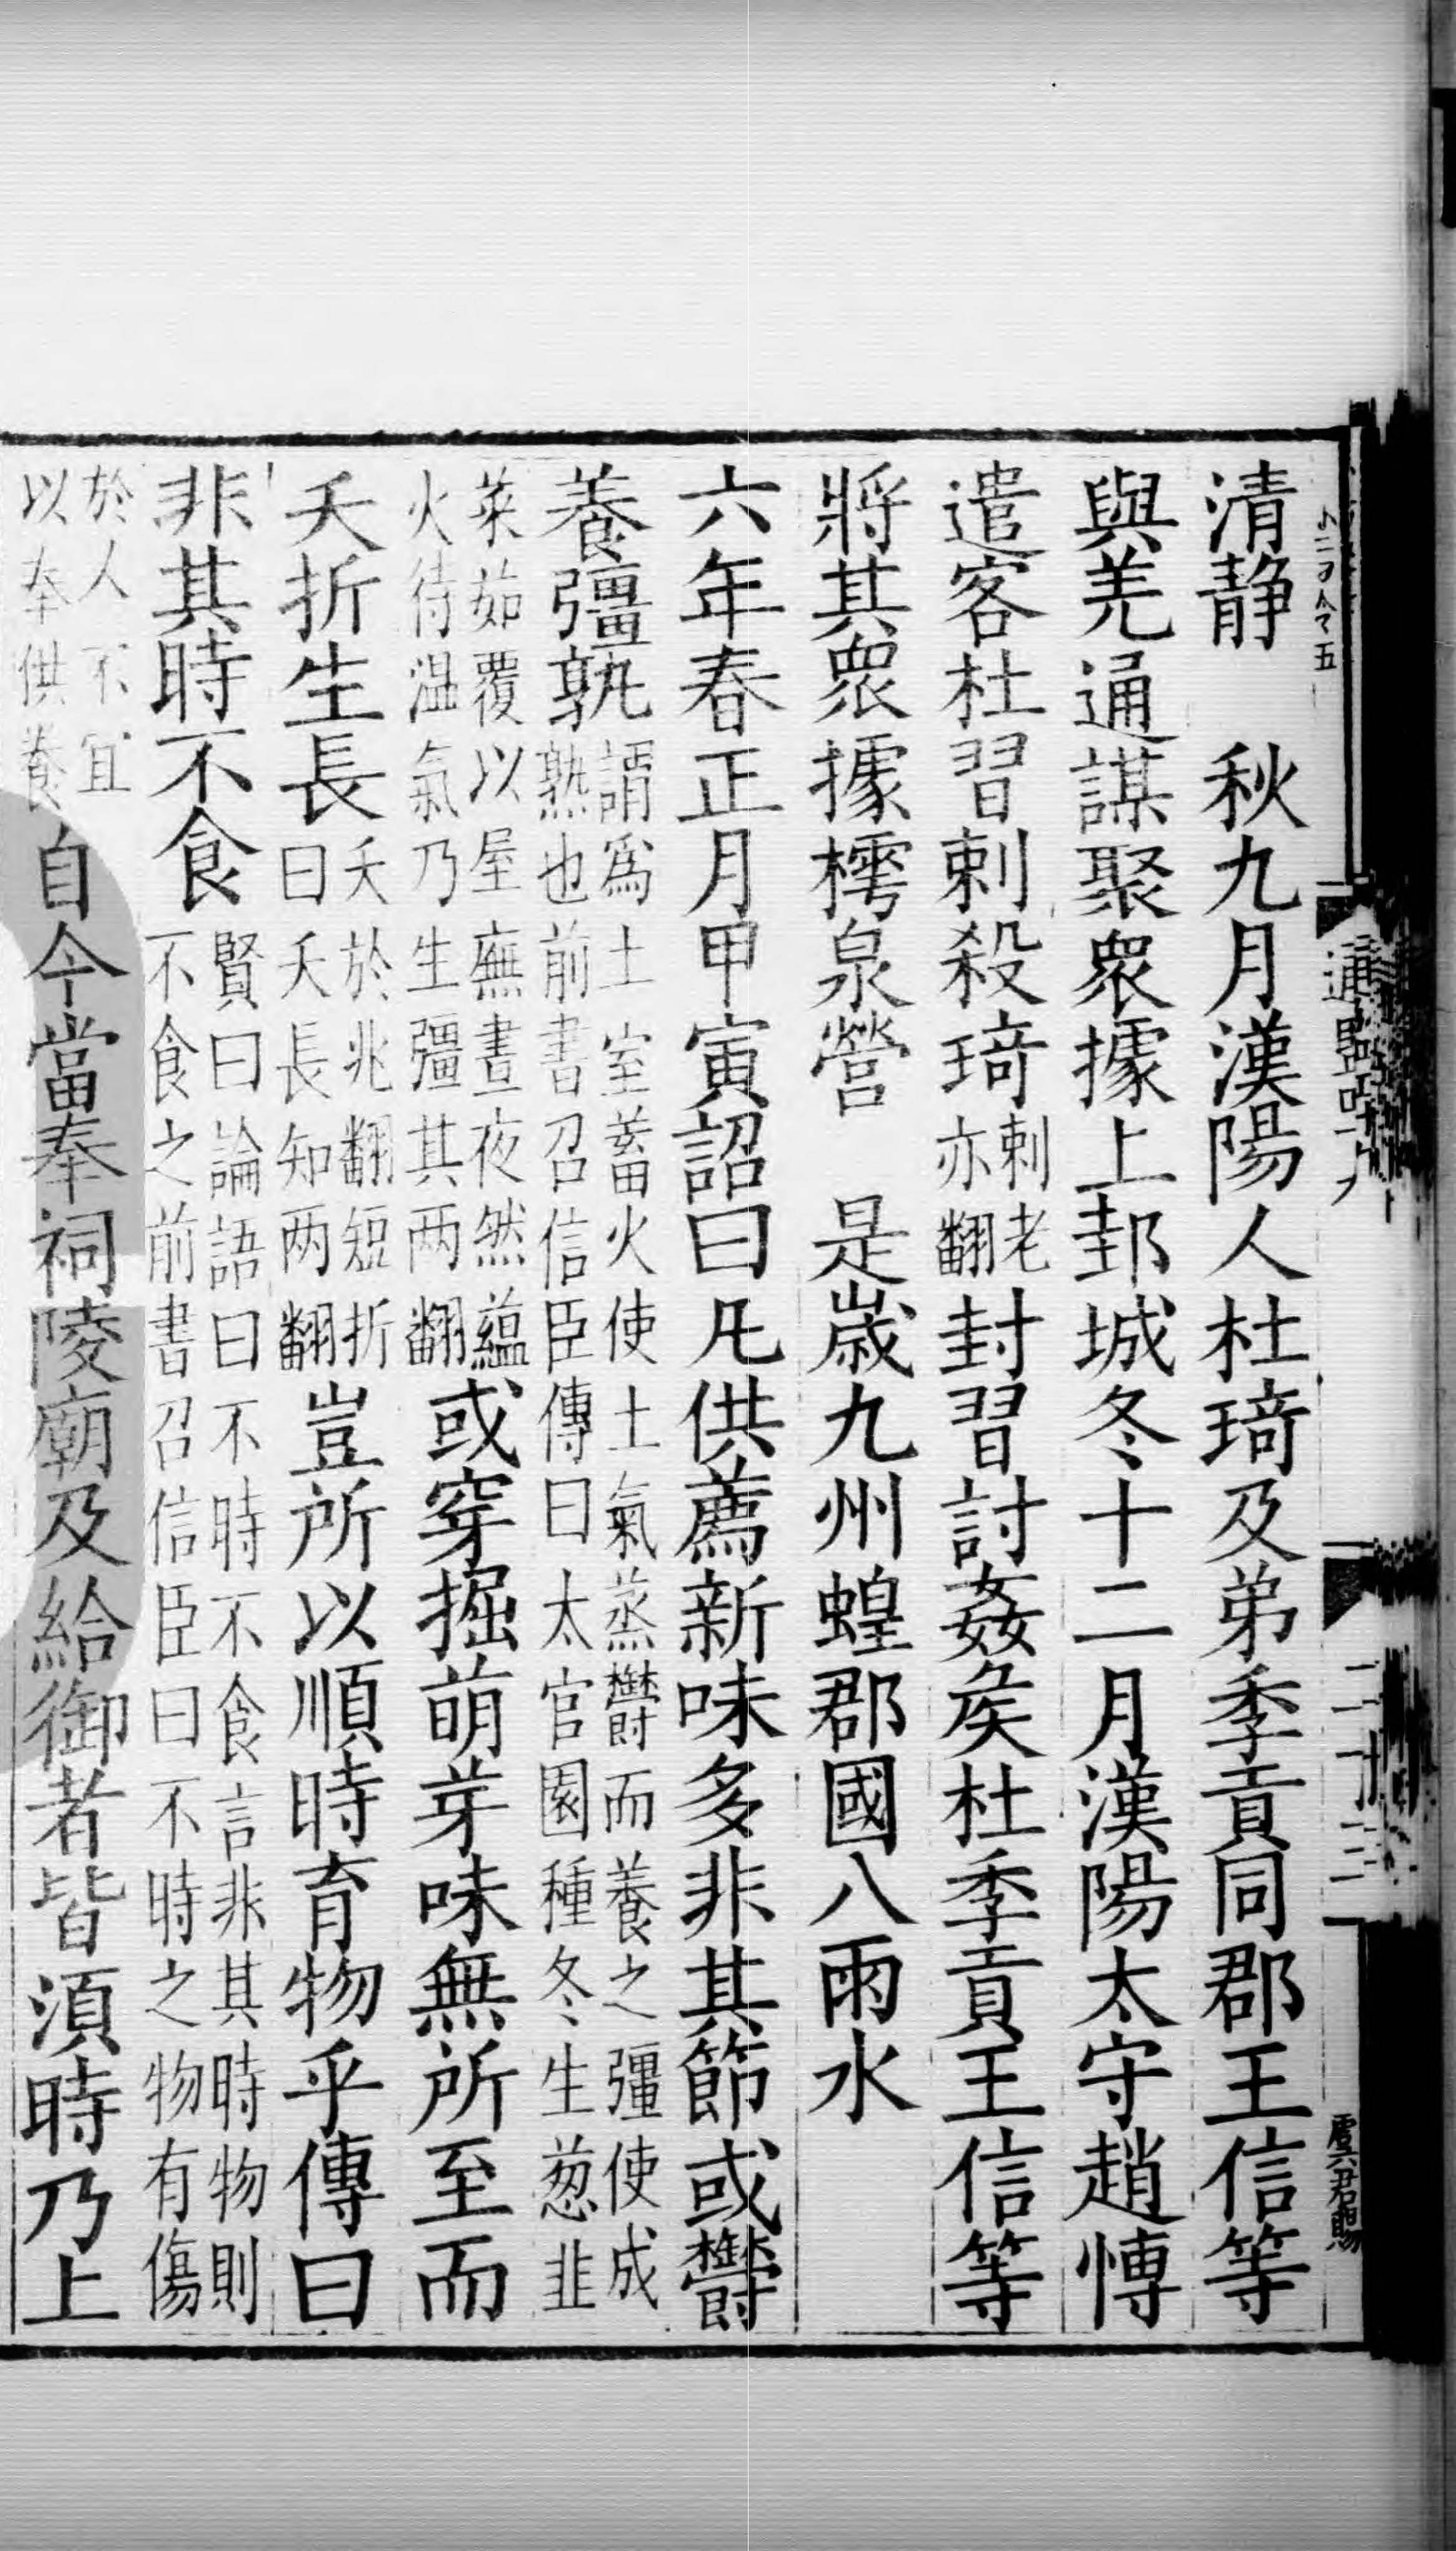 清静　秋九月漢陽人杜琦及弟季貢同郡王信等
與羌通謀聚衆據上邽城冬十二月漢陽太守趙愽
遣客杜習刺殺琦刺老亦翻封習討姦矦杜季貢王信等
將其衆據樗泉營　是歲九州蝗郡國八雨水
六年春正月甲寅詔曰凡供薦新味多非其節或鬱
養彊孰謂爲土室蓄火使土氣蒸鬱而養之彊使成熟也前書召信臣傳曰太官園種冬生葱韭
菜茹覆以屋廡晝夜然藴火待温氣乃生彊其两翻或穿掘萌芽味無所至而
夭折生長夭於兆翻短折曰夭長知两翻豈所以順時育物乎傳曰
非其時不食賢曰論語曰不時不食言非其時物則不食之前書召信臣曰不時之物有傷
於人不宜以奉供養自今當奉祠陵廟及給御者皆須時乃上
二十二